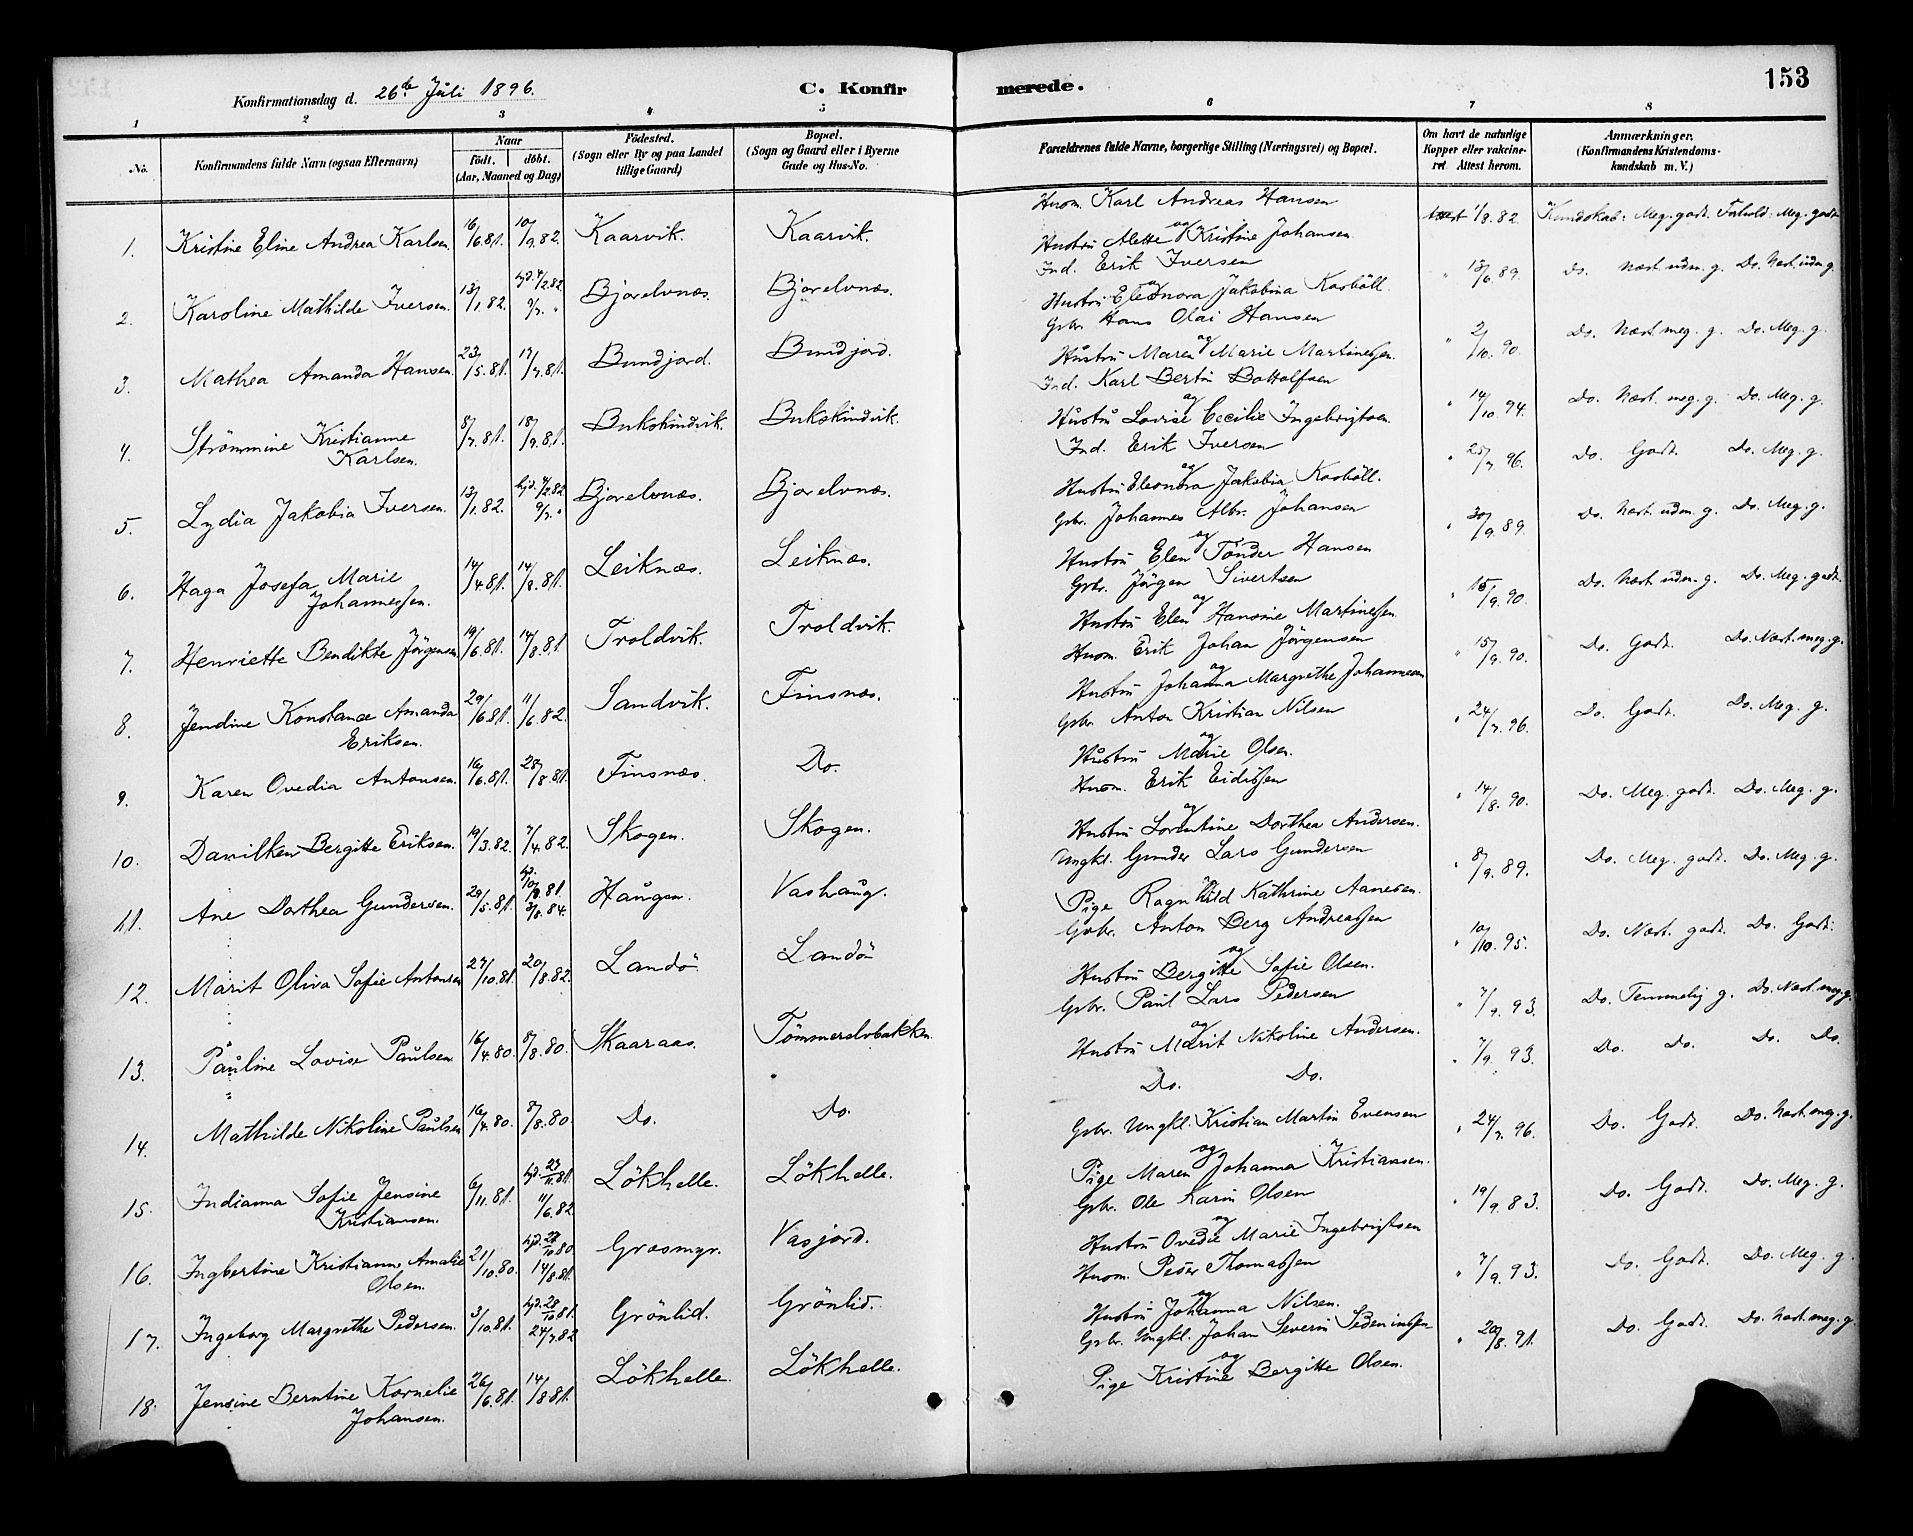 Konfirmationsdag d. 26de Juli 1896. C. Konfirmerede. 153
1 2 3 4 5 6 7 8
No. Konfirmandens fulde Navn (ogsaa Efternavn) Naar födt. döbt. (Aar, Maaned og Dag) Födested. (Sogn eller By og paa Landet tillige Gaard) Bopæl. (Sogn og Gaard eller i Byerne Gade og Hus-No. Forældrenes fulde Navne, borgerlige Stilling (Næringsvei) og Bopæl. Om havt de naturlige Kopper eller vakcineret. Attest herom. Anmærkninger. (Konfirmandens Kristendomskundskab m. V.)
1. Kristine Eline Andrea Karlsen 16/6.81. 10/9.82. Kaarvik. Kaarvik. Husm. Karl Andreas Hansen og Hustru Alette Kristine Johansen 1/8.82. Kundskab: Meg. godt. Forhold: Meg. godt
2. Karoline Mathilde Iversen. 13/1.82. hjd. 4/2.82. 9/7. " Bjorelvnæs. Bjorelvnæs. Ind. Erik Iversen og Hustru Eleonora Jakobina Kosböll. " 13/6.89. do. Næst. udm. g. Do. Næst. udm. g.
3. Mathea Amanda Hansen 23/5.81. 17/7.81. Bundjord. Bundjord. Gbr. Hans Olai Hansen og Hustru Maren Marie Martinessen. " 2/10.90. Do. Næst meg. g. Do. Meg. g.
4. Strömmine Kristianne Karlsen. 8/7.81. 18/9.81. Bukskindvik. Bukskindvik. Ind. Karl Bertin Bottolfsen og Hustru Lovise Cecilie Ingebrigtsen " 14/10.94. Do. Næst. meg. g. Do. Meg. g.
5. Lydia Jakobia Iversen. 13/1.82. hjd. 4/2.82. 9/7. " Bjorelvnæs. Bjorelvnæs. Ind. Erik Iversen og Hustru Eleonora Jakobia Kosböll. " 25/7.96. Do. Godt. Do. Meg. g.
6. Haga Josefa Marie Johannessen. 14/4.81. 14/8.81. Leiknæs. Leiknæs. Gbr. Johannes Albr. Johansen og Hustru Elen Tönder Hansen " 30/9.89. Do. Næst. udm. g. Do. Meg. g.
7. Henriette Bendikte Jörgensen 19/6.81. 14/8.81. Troldvik. Troldvik. Gbr. Jörgen Sivertsen og Hustru Elen Hansine Martinessen " 15/9.90. Do. Næst udm. g. Do. Meg. godt.
8. Jendine Konstance Amanda Eriksen. 29/6.81. 11/6.82. Sandvik. Finsnæs. Husm. Erik Johan Jörgensen og Hustru Johanna Margrethe Johannesen " 15/9.90. Do. Godt. Do. Næst. meg. g.
9. Karen Ovedia Antonsen. 16/6.81. 28/8.81. Finsnæs. Do. Gbr. Anton Kristian Nilsen og Hustru Marie Olsen. " 24/7.96. Do. Godt. Do. Meg. g.
10. Danilken Bergitte Eriksen. 19/3.82. 7/4.82. Skogen. Skogen. Husm. Erik Eidissen og Hustru Lorentine Dorthea Andersen. " 14/8.90. Do. Meg. godt. Do. Meg. g.
11. Ane Dorthea Gundersen. 29/5.81. 3/8.84. Haugen. Vashaug. Ungkl. Gunder Lars Gundersen og Pige Ragnhild Kathrine Aanesen. " 8/9.89. Do. Meg. godt. Do. Meg. g.
12. Marit Oliva Sofie Antonsen 27/10.81. 20/8.82. Landö Landö Gbr. Anton Berg Andreassen og Hustru Bergitte Sofie Olsen. " 10/10.95. Do. Næst. godt. Do. Godt.
13. Pauline Lovise Paulsen. 16/4.80. 8/8.80. Skaaraas. Tömmerelvbakken. Gbr. Paul Lars Pedersen og Hustru Marit Nikoline Andersen. " 7/9.93. Do. Temmelig g. Do. Næst. meg. g.
14. Mathilde Nikoline Paulsen 16/4.80. 8/8.80 Do. Do. Do. Do. " 7/9.93. Do. Do. Do. Do.
15. Indianna Sofie Jensine Kristiansen. 6/11.81. hjd. 27/11.81. 11/6.82 Lökhelle. Lökhelle. Gbr. Ungkl. Kristian Martin Evensen og Pige Maren Johanna Kristiansen. " 24/7.96. Do. Godt. Do. Næst. meg. g.
16. Ingbertine Kristianne Amalie Olsen. 21/10.80. 14/8.81. Græsmyr. Vasjord. Gbr. Ole Karin Olsen og Hustru Ovedie Marie Ingebrigtsen " 19/9.83. Do. Godt. Do. Meg. g.
17. Ingeborg Margrethe Pedersen. 3/10.81. hjd. 28/10.81. 24/7.82 Grönlid. Grönlid. Husm. Peder Thomassen og Hustru Johanna Nilsen. " 7/9.93. Do. Godt. Do. Meg. g.
18. Jensine Berntine Kornelie Johansen. 26/6.81. 14/8.81. Lökhelle. Lökhelle. Gbr. Ungkl. Johan Severin og Pige Kristine Bergitte Olsen. " 20/8.91. Do. Godt. Do. Næst. meg. g.